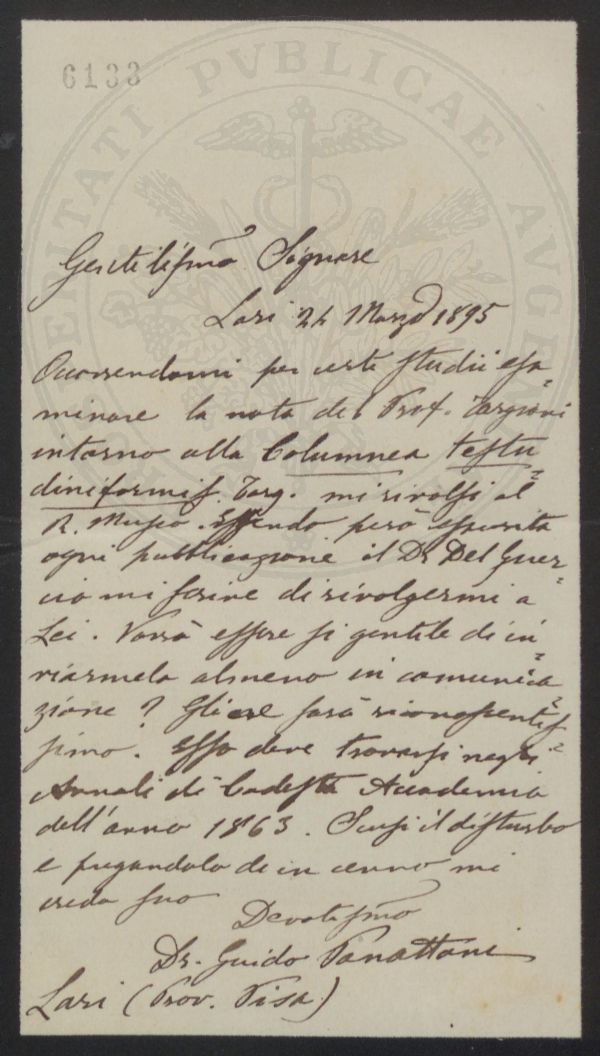 6133
PROSPERITATI PVBLICAE AVGENDAE
Gentilissmo Signore
Lari 24 Marzo 1895
Occorrendomi per certi studii esa=
minare la nota del Prof. Targioni
intorno alla Columnea testu=
diniformis Targ. mi rivolsi al
R. Museo. Essendo però esaurita
ogni pubblicazione il Dr Del Guer=
cio mi scrive di rivolgermi a
Lei. Vorrà essere sì gentile di in=
viarmela almeno in comunica=
zione? Gliene sarò riconoscentis=
simo. Essa deve trovarsi negli
Annali di Codesta Accademia
dell'anno 1863. Scusi il disturbo
e pregandola di un cenno mi
creda suo
Devotissmo
Dr. Guido Panattoni
Lari (Prov. Pisa)